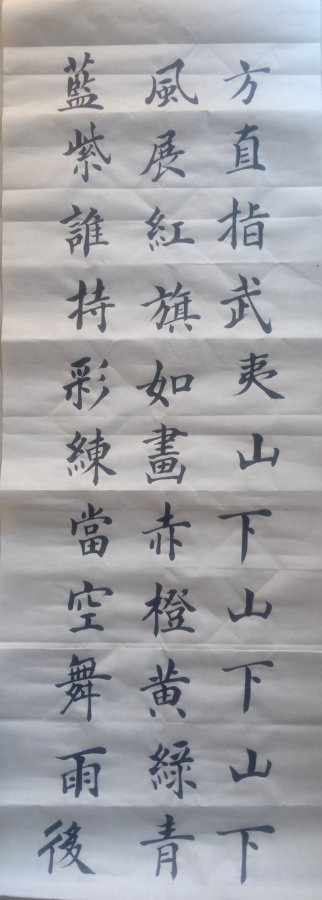 方直指武夷山下山下山下
風展紅旗如畫赤橙黄綠青
藍紫誰持彩練當空舞雨後